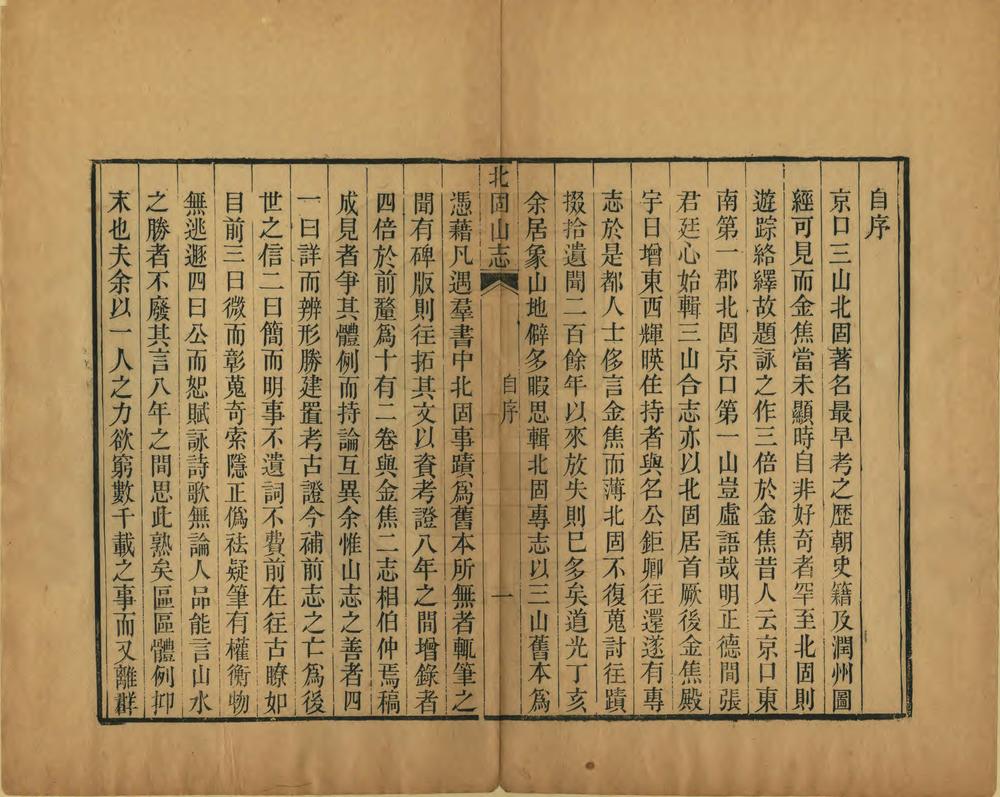 自序
京口三山北固著名最早考之歷朝史籍及潤州圖
經可見而金焦當未顯時自非好奇者罕至北固則
遊踪絡繹故題詠之作三倍於金焦昔人云京口東
南第一郡北固京口第一山豈虛語哉明正德間張
君廷心始輯三山合志亦以北固居首厥後金焦殿
宇日增東西輝暎住持者與名公鉅卿往還遂有專
志於是都人士侈言金焦而薄北固不復蒐討往蹟
掇拾遺聞二百餘年以來放失則已多矣道光丁亥
余居象山地僻多暇思輯北固專志以三山舊本爲
北固山志
自序
一
憑藉凡遇羣書中北固事蹟爲舊本所無者輒筆之
聞有碑版則往拓其文以資考證八年之間增錄者
四倍於前釐爲十有二卷與金焦二志相伯仲焉稿
成見者爭其體例而持論互異余惟山志之善者四
一曰詳而辨形勝建置考古證今補前志之亡爲後
世之信二曰簡而明事不遺詞不費前在往古瞭如
目前三曰微而彰蒐奇索隱正僞祛疑筆有權衡物
無逃遯四曰公而恕賦詠詩歌無論人品能言山水
之勝者不廢其言八年之間思此熟矣區區體例抑
末也夫余以一人之力欲窮數千載之事而又離群